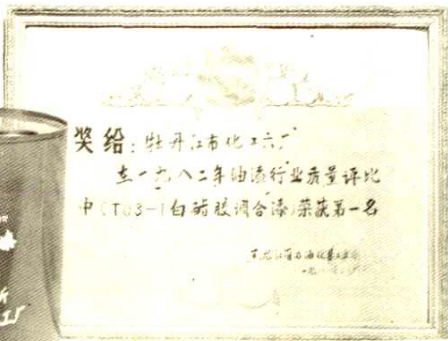 奖给：牡丹江市化工六厂
在一九八二年油漆行业质量评比
中(T03-1白酯胶调合漆)荣获第一名